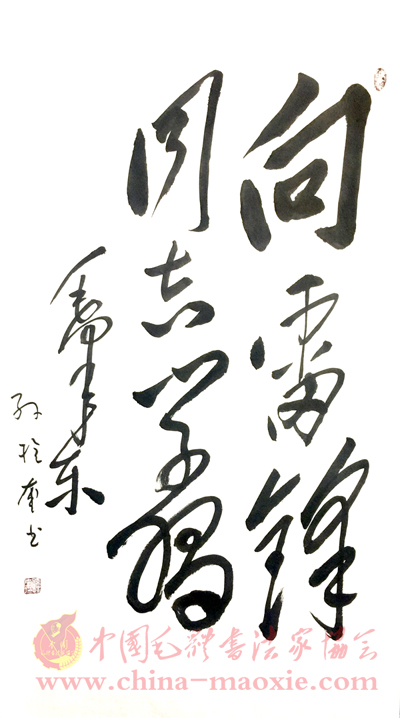 向雷锋
同志学习
毛泽东
中國毛體書法家協会
www.china-maoxie.com